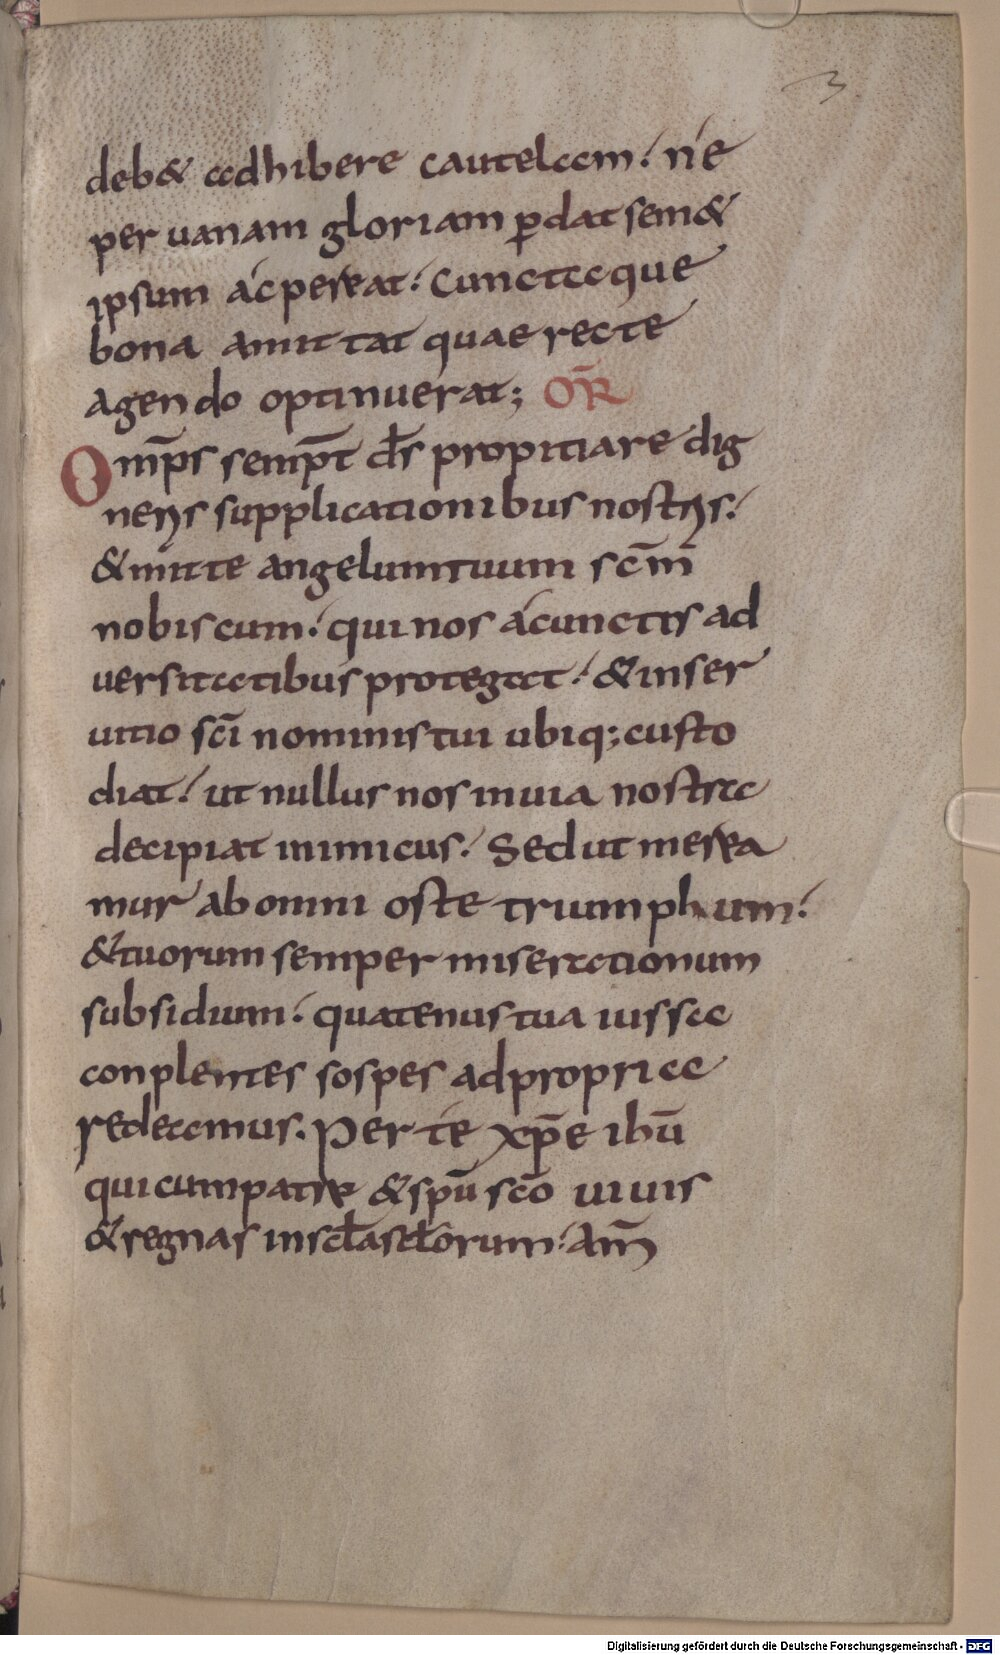 3
deb& adhibere cautelam: ne
per uanam gloriam p̲dat sem&
ipsum ac pereat: Cunctaque
bona amittat quae recte
agendo optinuerat; OR̄
Om̄ps semp̄t d̄s propitiare dig
neris supplicationibus nostris:
& mitte angelum tuum sc̄m
nobiscum: qui nos a cunctis ad
uersitatibus protegat: & in ser
uitio sc̄i nominis tui ubiq; custo
diat: ut nullus nos in uia nostra
decipiat inimicus: Sed ut merea
mur ab omni oste triumphum:
& tuorum semper miserationum
subsidium: quatenus tua iussa
conplentes sospes ad propria
redeamus. Per te xp̄e ihū
qui cum patre & spū sc̄o uiuis
& regnas in sc̄la sc̄lorum: Am̄
Digitalisierung gefördert durch die Deutsche Forschungsgemeinschaft - DFG